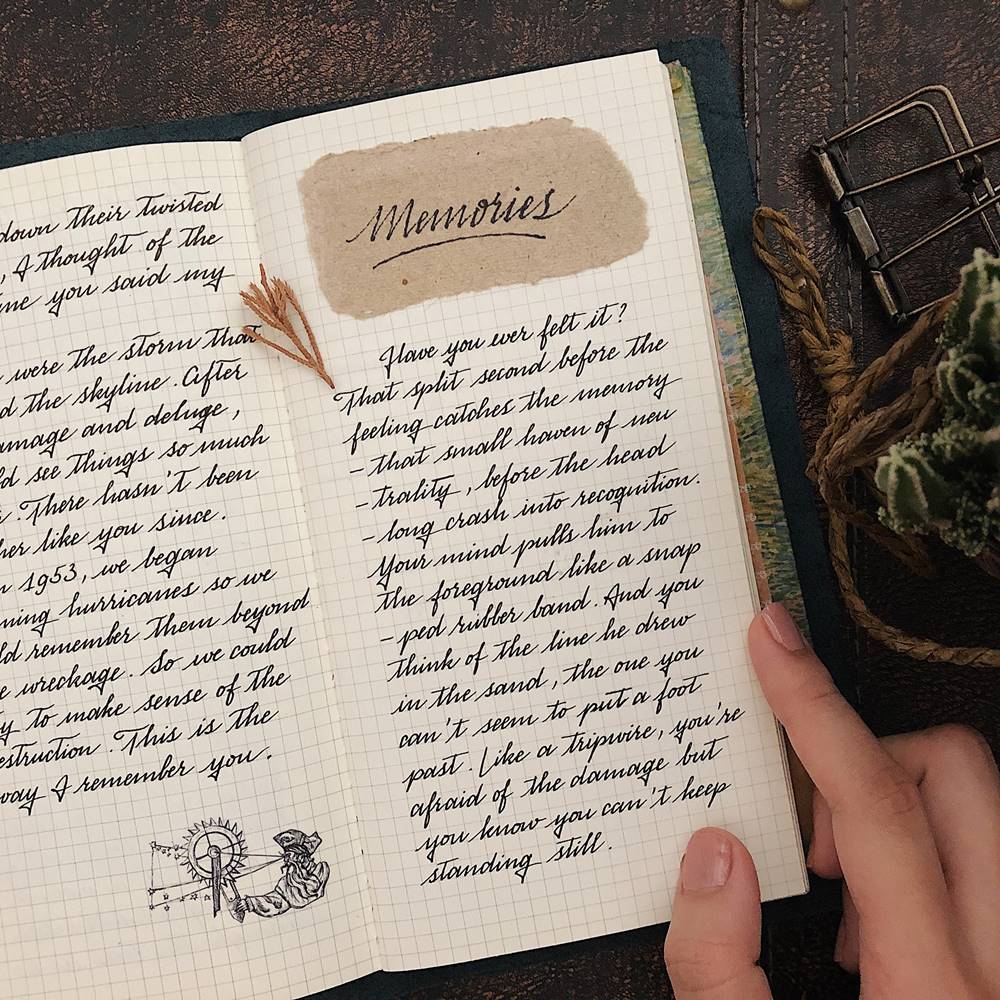 down their twisted
, I thought of the
you said my
were the storm that
the skyline. After
and deluge,
see things so much
. There hasn't been
like you since.
1953, we began
hurricanes so we
remember them beyond
wreckage. So we could
to make sense of the
. This is the
way I remember you.
Memories
Have you ever felt it?
That split second before the
feeling catches the memory
- that small haven of neu
- trality, before the head
- long crash into recognition.
Your mind pulls him to
the foreground like a snap
- ped rubber band. And you
think of the line he drew
in the sand, the one you
can't seem to put a foot
past. Like a tripwire, you're
afraid of the damage but
you know you can't keep
standing still.